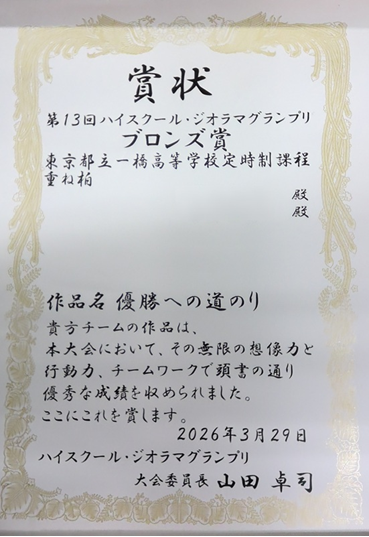 賞状
第13回ハイスクール・ジオラマグランプリ
ブロンズ賞
東京都立一橋高等学校定時制課程
重ね柏
殿
殿
作品名 優勝への道のり
貴方チームの作品は、
本大会において、その無限の想像力と
行動力、チームワークで頭書の通り
優秀な成績を収められました。
ここにこれを賞します。
2026年3月29日
ハイスクール・ジオラマグランプリ
大会委員長 山田 卓司